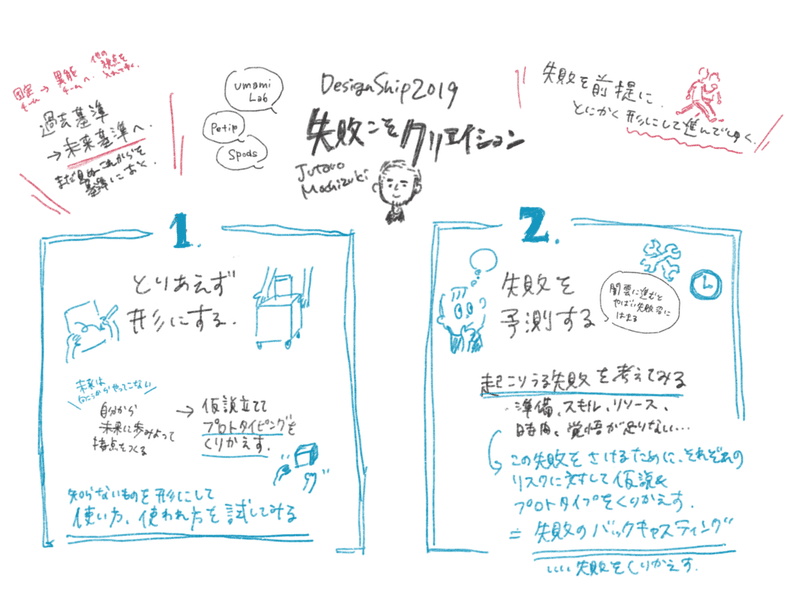 固定チーム → 異能チームへ
他の視点を入れていく
過去基準
→未来基準へ
まだ見ぬこれからを
基準におく
umami
Lab
Petip
Spods
DesignShip2019
失敗こそクリエイション
Jutaro
Mochizuki
失敗を前提に、
とにかく形にして進んでゆく.
1.
とりあえず
形にする.
未来は
向こうからやってこない
自分から
未来に歩みよって
接点をつくる
→ 仮説立てて
プロトタイピングを
くりかえす.
知らないものを形にして
使い方、使われ方を試してみる
2.
失敗を
予測する
闇雲に進むと
やばい失敗に
はまる
起こりうる失敗を考えてみる
・準備、スキル、リソース、
時間、覚悟が足りない…
この失敗をさけるために、それぞれの
リスクに対して仮説&
プロトタイプをくりかえす.
= 失敗のバックキャスティング
いい失敗をくりかえす.